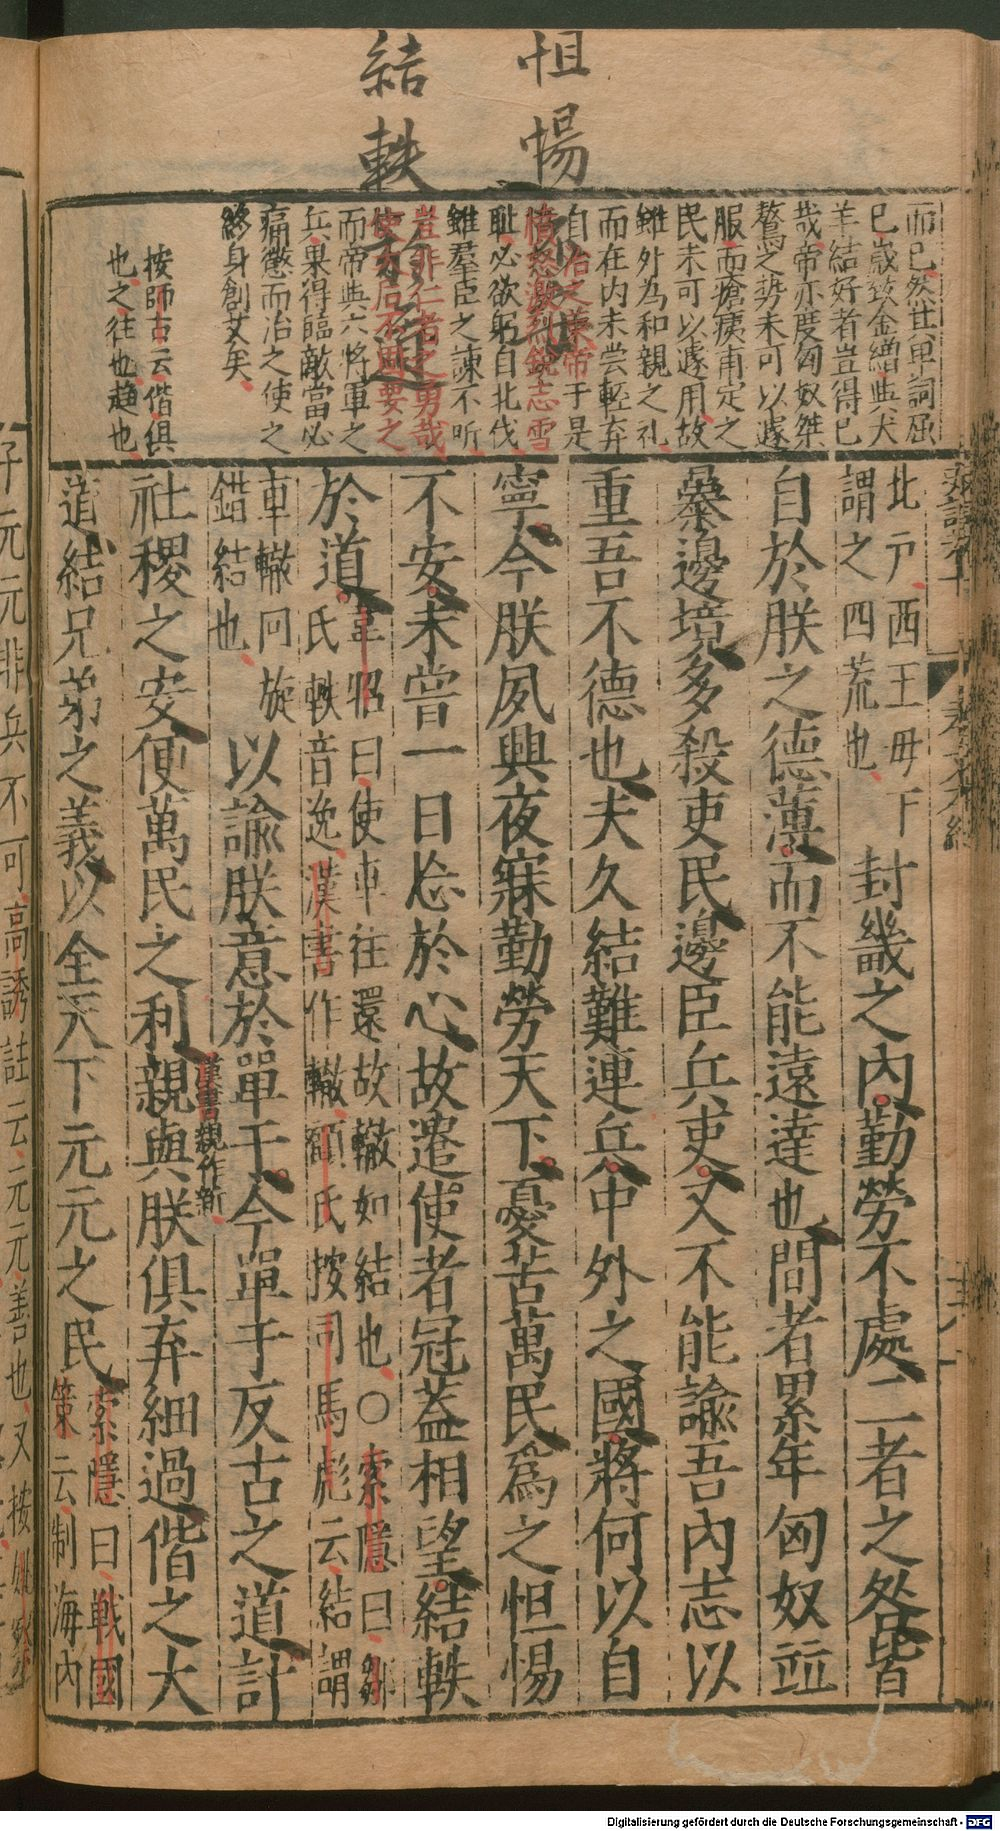 怛惕
結軼
而已然世卑詞屈
已歲致金繒與犬
羊結好者豈得已
哉帝亦度匈奴桀
驁之勢未可以遽
服而瘡痍甫定之
民未可以遽用故
雖外為和親之礼
而在内未嘗輕弃
自治之兼帝于是
憤怒激烈銳志雪
耻必欲躬自北伐
雖羣臣之諫不听
豈非仁者之勇哉
使太后不固要之
而帝與六將軍之
兵果得臨敵當必
痛懲而治之使之
終身創艾矣
按師古云偕俱
也之往也趋也
北戸西王母下
謂之四荒也
封畿之內勤勞不處二者之咎皆
自於朕之德薄而不能遠達也間者累年匈奴並
暴邊境多殺吏民邊臣兵吏又不能諭吾內志以
重吾不德也夫久結難連兵中外之國將何以自
寧今朕夙興夜寐勤勞天下憂苦萬民爲之怛惕
不安未嘗一日忘於心故遣使者冠蓋相望結軼
於道
韋昭曰使車往還故轍如結也○索隱曰鄒
氏軼音逸漢書作轍顧氏按司馬彪云結謂
車轍囘旋
錯結也
以諭朕意於單于今單于反古之道計
社稷之安便萬民之利親與朕俱弃細過偕之大
漢書親作新
道結兄弟之義以全天下元元之民
索隱曰戰國
策云制海內
子元元非兵不可高誘註云元元善也又按姚察